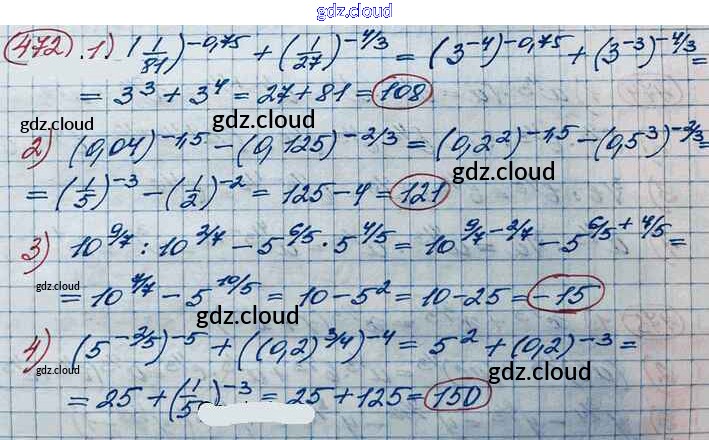 gdz.cloud
472. 1) (1/81)^-0,75 + (1/27)^-4/3 = (3^-4)^-0,75 + (3^-3)^-4/3 =
= 3^3 + 3^4 = 27 + 81 = 108
gdz.cloud
gdz.cloud
2) (0,04)^-1,5 - (0,125)^-2/3 = (0,2^2)^-1,5 - (0,5^3)^-2/3 =
gdz.cloud
= (1/5)^-3 - (1/2)^-2 = 125 - 4 = 121
3) 10^9/7 : 10^2/7 - 5^6/5 · 5^4/5 = 10^9/7-2/7 - 5^6/5+4/5 =
gdz.cloud
= 10^7/7 - 5^10/5 = 10 - 5^2 = 10 - 25 = -15
gdz.cloud
gdz.cloud
4) (5^-2/5)^-5 + ((0,2)^3/4)^-4 = 5^2 + (0,2)^-3 =
gdz.cloud
gdz.cloud
= 25 + (1/5)^-3 = 25 + 125 = 150